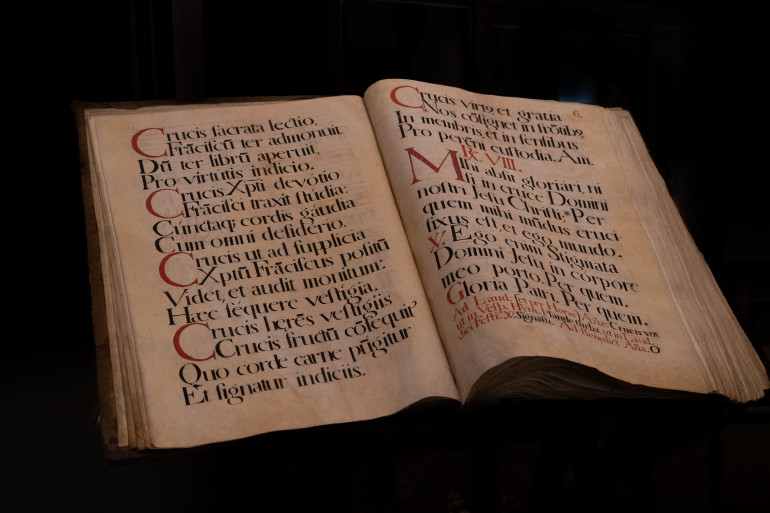 Crucis sacrata lectio,
Frãciscũ ter admonuit
Dũ ter librũ aperuit,
Pro virtutis indicio.
Crucis Xp̃ti devotio
Frãcisci traxit studia:
Cũndaq; cordis gaudia
Cum omni desiderio.
Crucis ut ad supplicia
Xp̃tũ Frãciscus positũ
Videt, et audit monitum:
Hæc sequere vestigia.
Crucis herẽs vestigiis
Crucis fructũ cõsequit'
Quo corde carne pũgitur
Et signatur indiciis.
Crucis virt9 et gratia
Nos cõsignet in frõtib9
In membris, et in sensibus
Pro perẽni custodia. Am.
VIII.
Mihi absit gloriári, ni
si in cruce Domini
nostri Jesu Christi:* Per
quem mihi mũdus cruci
fixus est, et ego mundo.
℣. Ego enim Stigmata
Domini Jesu in corpore
meo porto. Per quem.
Gloria Patri. Per quem.
Ad Laud. et per
Horas Aña: Crucis vox
Plaude turba, ut in Laud.
Signasti. Ad Benedict. Aña. O